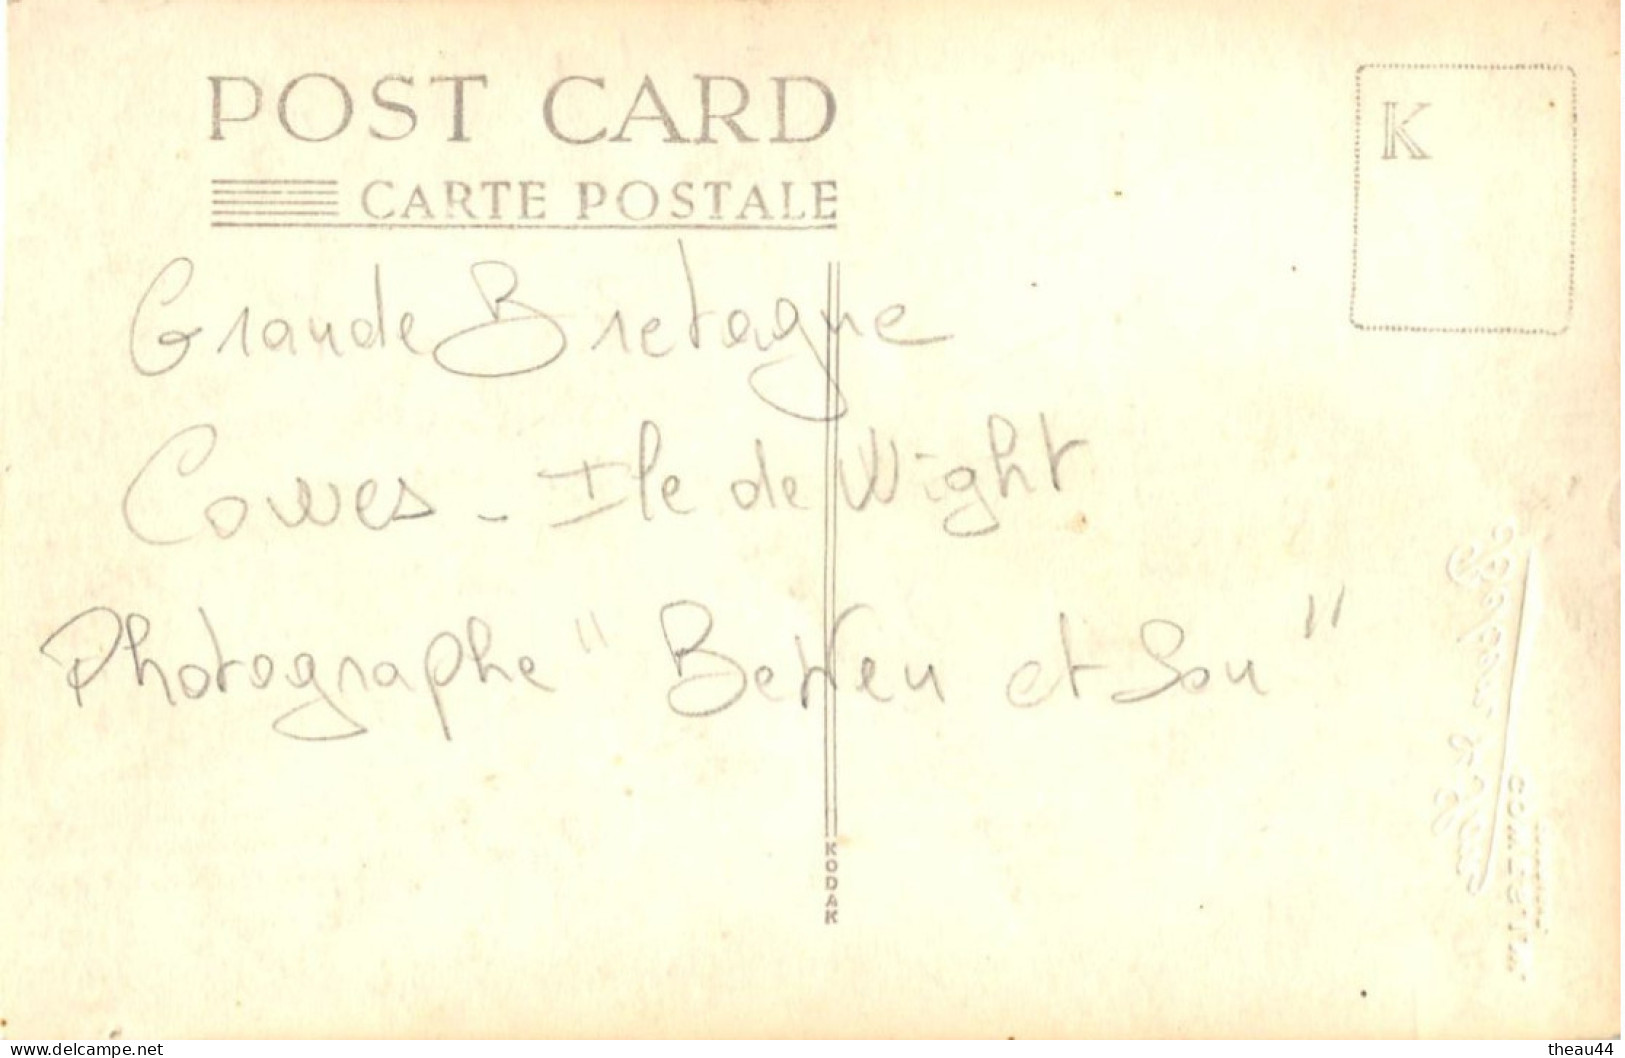 POST CARD
CARTE POSTALE
K
Grande Bretagne
Cowes - Ile de Wight
Photographe " Beken et Son "
KODAK
COWES
www.delcampe.net
theau44